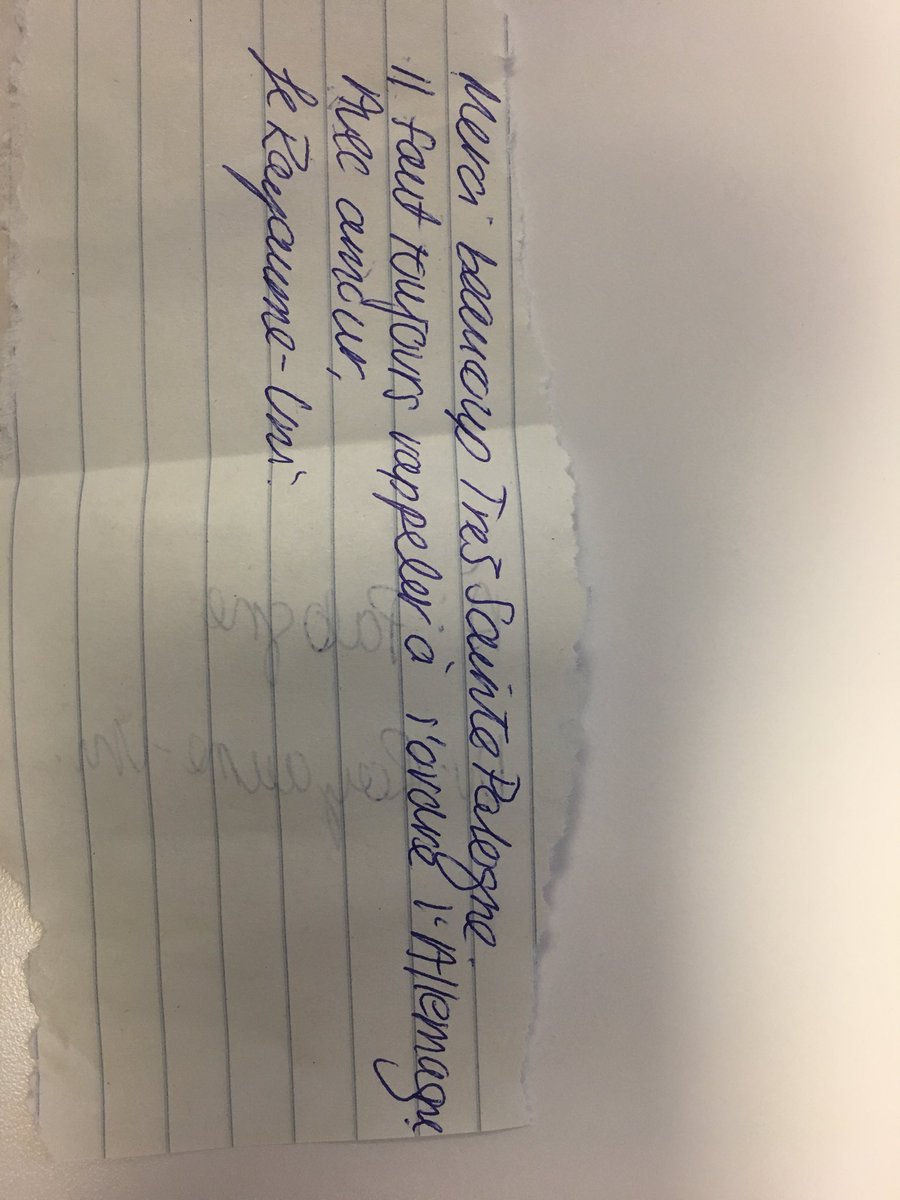 Merci beaucoup Très Sainte Pologne.
Il faut toujours rappeler à l'ordre l'Allemagne.
Avec amour,
Le Royaume-Uni.
Pologne
Royaume-Uni